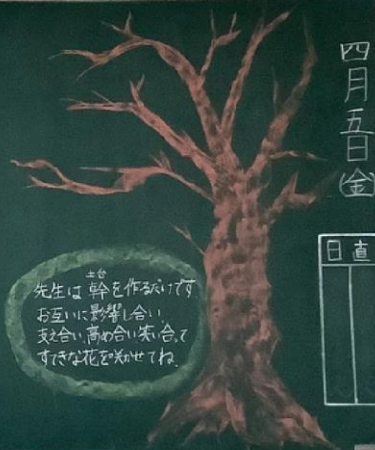 四月五日(金)
日直
土台
先生は幹を作るだけです
お互いに影響し合い
支え合い高め合い笑い合って
すてきな花を咲かせてね。